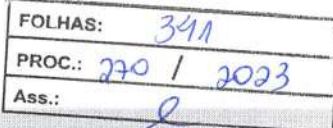 FOLHAS: 341
PROC.: 270 / 2023
Ass.: